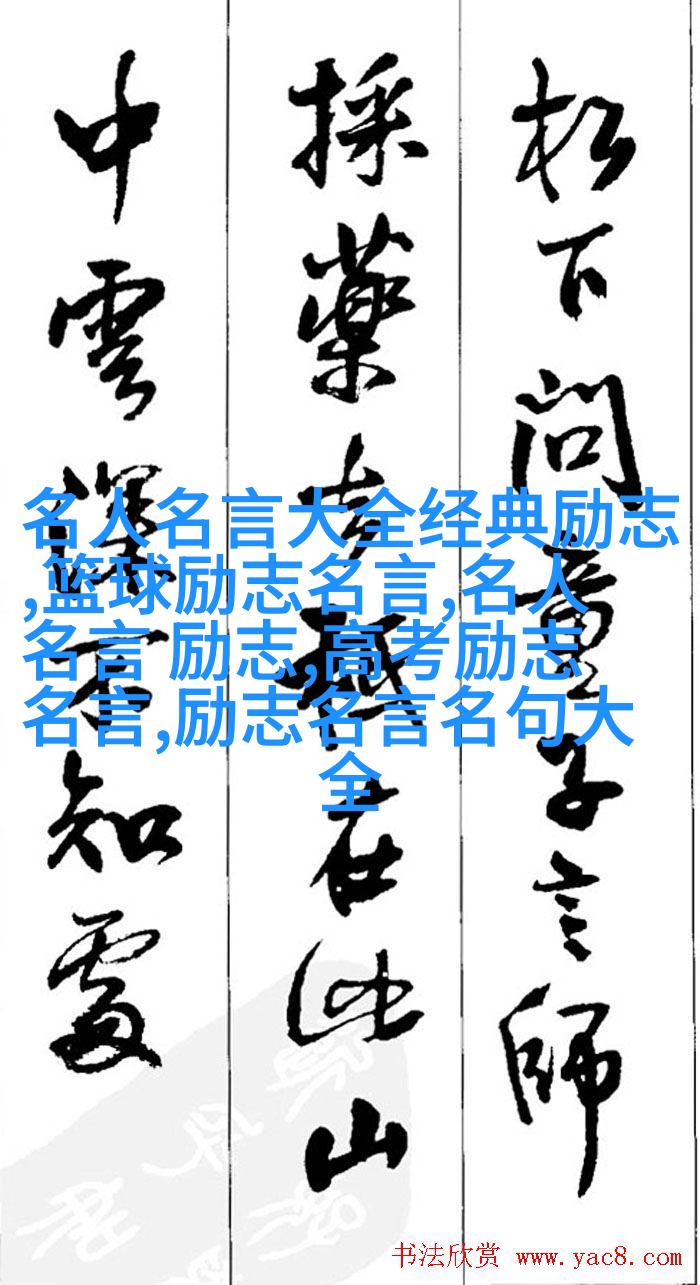 松下問童子言師
採藥去在此山
中雲深不知處
名人名言大全经典励志
,篮球励志名言,名人
名言 励志,高考励志
名言,励志名言名句大
全
书法欣赏 www.yac8.com